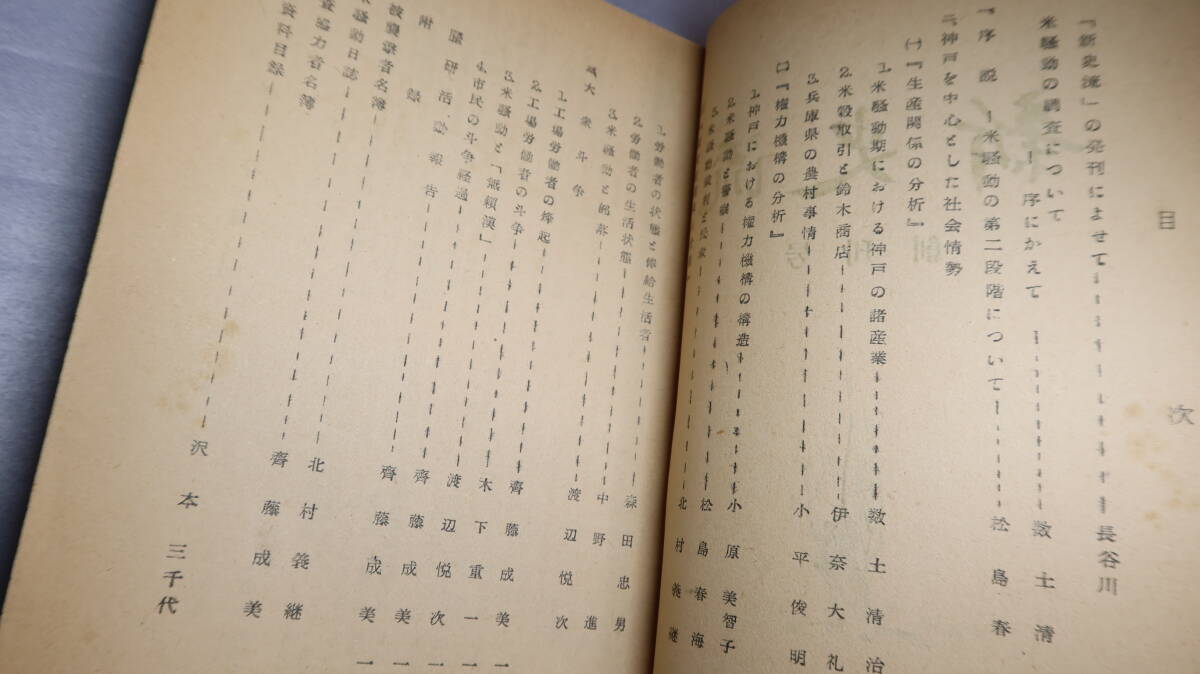 目 次
『新史流』の発刊によせて 長谷川
米騒動の調査について
― 序にかえて 数土清
『序 説 ―米騒動の第二段階について 松島春
二、神戸を中心とした社会情勢
㈠『生産関係の分析』
1. 米騒動期における神戸の諸産業 数土清治
2. 米穀取引と鈴木商店 伊奈大礼
3. 兵庫県の農村事情 小平俊明
㈡『権力機構の分析』
1. 神戸における権力機構の構造 小原美智子
2. 米騒動と 松島春海
3. 米騒動裁判と 北村
1. 労働者の状態と俸給生活者 森田忠男
2. 労働者の生活状態 中野進
3. 米騒動と部落 渡辺悦次
大衆斗争
1. 工場労働者の蜂起
2. 工場労働者の斗争 齊藤成美
3. 米騒動と「無頼漢」 木下重一
4. 市民の斗争経過 渡辺悦次
歴研活動報告 齊藤成美
附 録
被 者名簿 齊藤成美
米騒動日誌 北村 継
査協力者名簿 齊藤成美
資料目録 沢本三千代
創刊号